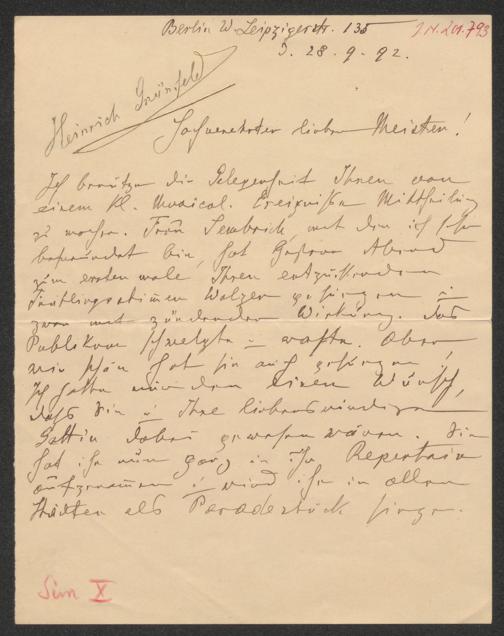 Berlin W. Leipzigerstr. 135
J.N. 201.793
D. 28.9.92.
Heinrich Grünfeld
Hochverehrter lieber Meister!
Ich benütze die Gelegenheit Ihnen von
einem kl. Musical. Ereigniße Mittheilung
zu machen. Frau Sembrich, mit der ich sehr
befreundet bin, hat gestern Abend
zum ersten male Ihren entzückenden
Frühlingsstimmen Walzer gesungen u
zwar mit zündender Wirkung. Das
Publikum schwelgte u raste. Aber
wie schön hat sie auch gesungen!
Ich hatte nur den einen Wunsch,
daß Sie u Ihre liebenswürdige
Gattin dabei gewesen wären. Sie
hat ihn nun ganz in ihr Repertoir
aufgenommen u wird ihn in allen
Städten als Paradestück singen.
Sim X